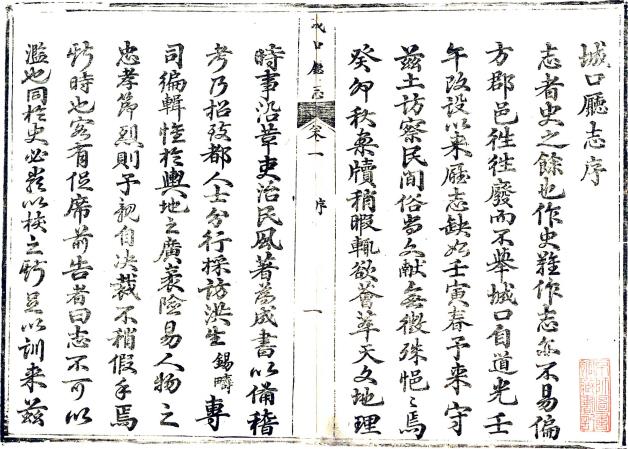 城口廳志序
志者史之餘也作史難作志亦不易偏
方郡邑徃徃廢而不舉城口自道光壬
午改設以来廳志缺如壬寅春予来守
兹土訪察民間俗尚文献無徴殊悒〻焉
癸卯秋案牘稍暇輒欲薈萃天文地理
城口廳志
卷一
序
一
時事沿革吏治民風著為成書以備稽
考乃招致都人士分行採訪洪生錫疇專
司編輯惟於輿地之廣袤險易人物之
忠孝節烈則予親自決裁不稍假手焉
時也客有促席前告者曰志不可以
濫也同於史必嚴以核之足以訓来兹